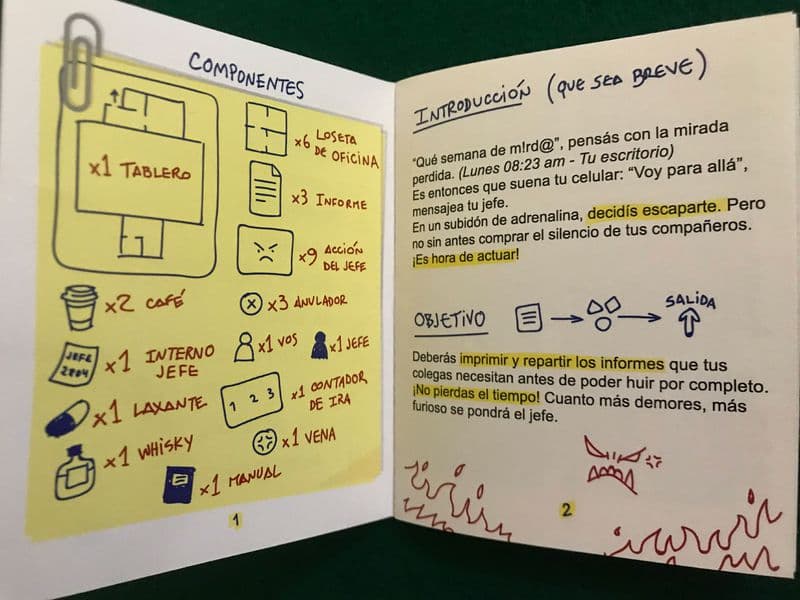 COMPONENTES
x1 TABLERO
x6 LOSETA
DE OFICINA
x3 INFORME
x9 ACCIÓN
DEL JEFE
x2 CAFÉ
x3 ANULADOR
JEFE
2804
x1 INTERNO
JEFE
x1 VOS
x1 JEFE
x1 LAXANTE
1 2 3
x1 CONTADOR
DE IRA
x1 WHISKY
x1 VENA
x1 MANUAL
1
INTRODUCCIÓN (QUE SEA BREVE)
“Qué semana de m!rd@”, pensás con la mirada
perdida. (Lunes 08:23 am - Tu escritorio)
Es entonces que suena tu celular: “Voy para allá”,
mensajea tu jefe.
En un subidón de adrenalina, decidís escaparte. Pero
no sin antes comprar el silencio de tus compañeros.
¡Es hora de actuar!
OBJETIVO
SALIDA
Deberás imprimir y repartir los informes que tus
colegas necesitan antes de poder huir por completo.
¡No pierdas el tiempo! Cuanto más demores, más
furioso se pondrá el jefe.
2